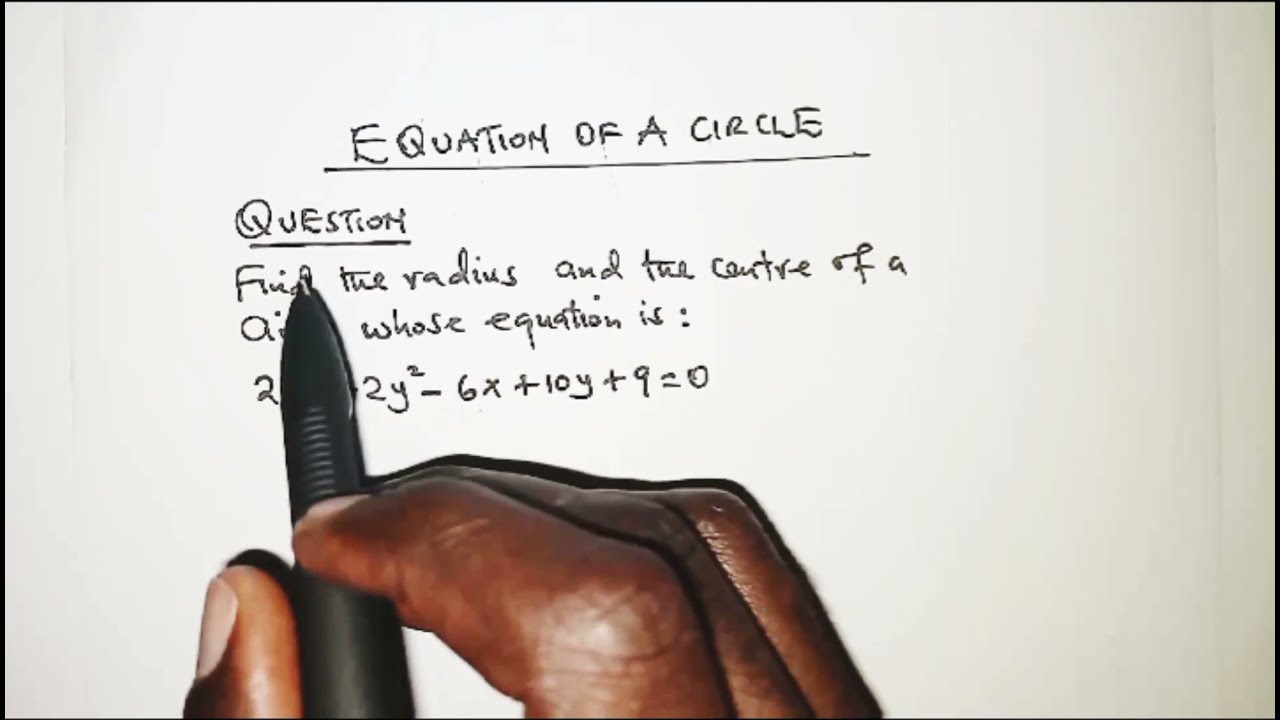 EQUATION OF A CIRCLE
QUESTION
Find the radius and the centre of a
whose equation is:
2 2y² - 6x + 10y + 9 = 0